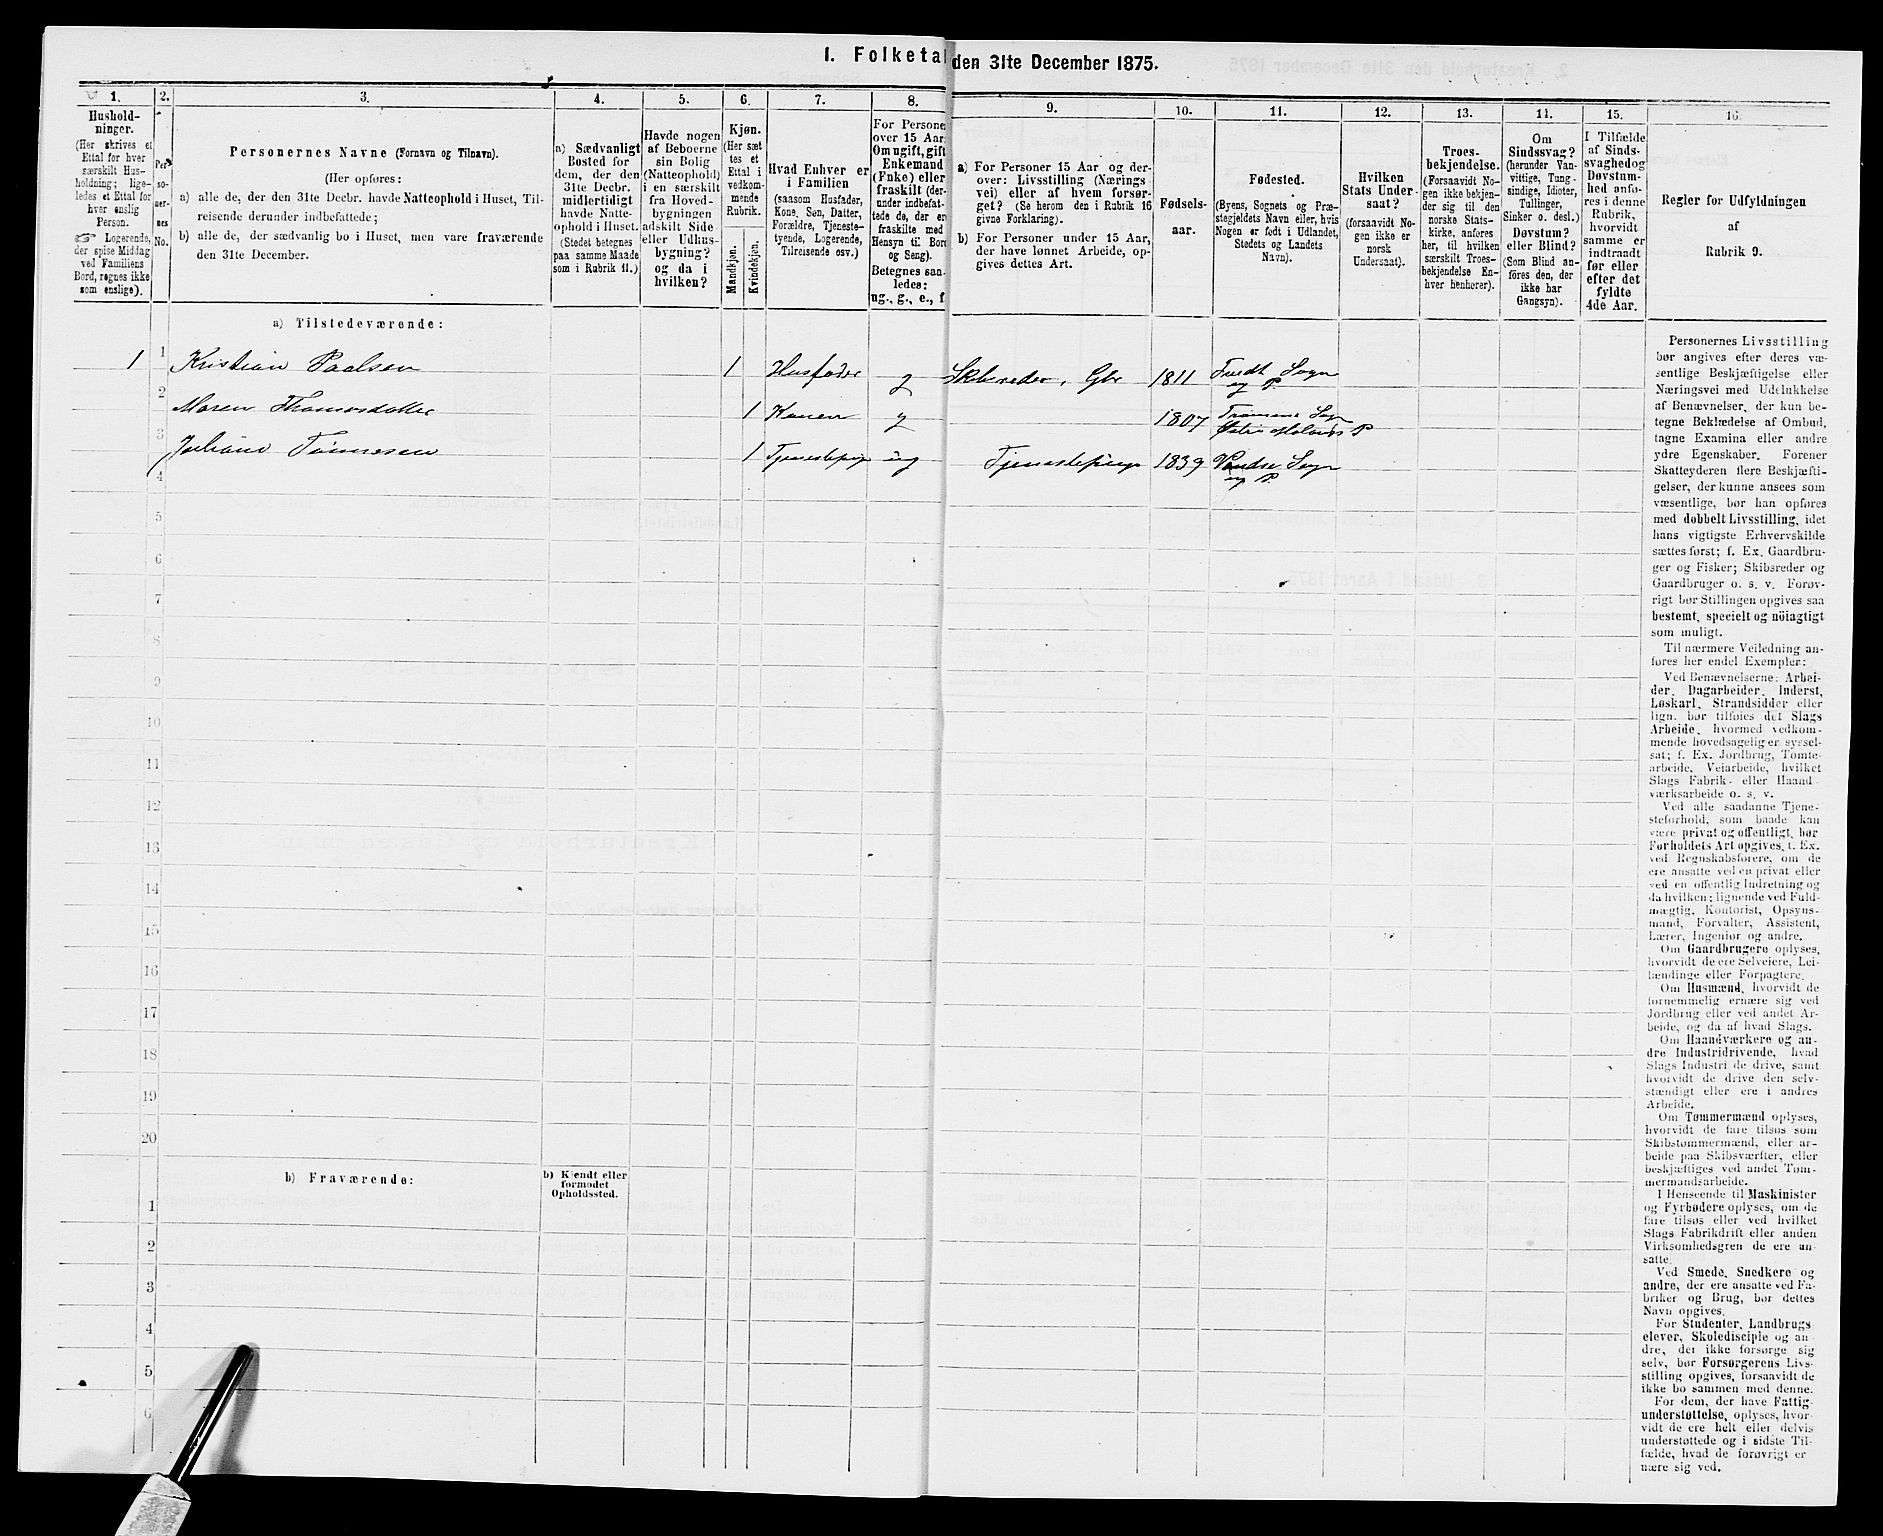 1. Folketal den 31te December 1875.
1. 2. 3. 4. 5. 6. 7. 8. 9. 10. 11. 12. 13. 14. 15. 16.
Hushold-
ninger.
(Her skrives et
Ettal for hver
særskilt Hus-
holdning; lige-
ledes et Ettal for
hver enslig
Person.
☞ Logerende,
der spise Middag
ved Familiens
Bord, regnes ikke
som enslige).
Per-
so-
ner-
nes
No.
Personernes Navne (Fornavn og Tilnavn).
(Her opføres:
a) alle de, der den 31te Decbr. havde Natteophold i Huset, Til-
reisende derunder indbefattede;
b) alle de, der sædvanlig bo i Huset, men vare fraværende
den 31te December.
a) Sædvanligt
Bosted for
dem, der den
31te Decbr.
midlertidigt
havde Natte-
ophold i Huset.
(Stedet betegnes
paa samme Maade
som i Rubrik 11.)
Havde nogen
af Beboerne
sin Bolig
(Natteophold)
i en særskilt
fra Hoved-
bygningen
adskilt Side-
eller Udhus-
bygning?
og da i
hvilken?
Kjøn.
(Her sæt-
tes et
Ettal i
vedkom-
mende
Rubrik.
Mandkjøn.
Kvindekjøn.
Hvad Enhver er
i Familien
(saasom Husfader,
Kone, Søn, Datter,
Forældre, Tjeneste-
tyende, Logerende,
Tilreisende osv.)
For Personer
over 15 Aar:
Om ugift, gift,
Enkemand
(Enke) eller
fraskilt (der-
under indbefat-
tede de, der ere
fraskilte med
Hensyn til Bord
og Seng).
Betegnes saa-
ledes:
ug., g., e., f.
a) For Personer 15 Aar og der-
over: Livsstilling (Nærings-
vei) eller af hvem forsør-
get? (Se herom den i Rubrik 16
givne Forklaring).
b) For Personer under 15 Aar,
der have lønnet Arbeide, op-
gives dettes Art.
Fødsels-
aar.
Fødested.
(Byens, Sognets og Præ-
stegjeldets Navn eller, hvis
Nogen er født i Udlandet,
Stedets og Landets
Navn).
Hvilken
Stats Under-
saat?
(forsaavidt No-
gen ikke er
norsk
Undersaat).
Troes-
bekjendelse.
(Forsaavidt No-
gen ikke bekjen-
der sig til den
norske Stats-
kirke, anføres
her, til hvilken
særskilt Troes-
bekjendelse En-
hver henhører).
Om
Sindssvag?
(herunder Van-
vittige, Tung-
sindige, Idioter,
Tullinger,
Sinker o. desl.)
Døvstum?
eller Blind?
(Som Blind an-
føres den, der
ikke har
Gangsyn).
I Tilfælde
af Sinds-
svaghed og
Døvstum-
hed anfø-
res i denne
Rubrik,
hvorvidt
samme er
indtraadt
før eller
efter det
fyldte
4de Aar.
Regler for Udfyldningen
af
Rubrik 9.
a) Tilstedeværende:
1 1 Kristian Paalsen 1 Husfader g Skibsreder, Gbr 1811 Tvedt Sogn
og P.
2 Maren Thomasdatter 1 Konen g 1807 Tromøens Sogn
Østre Molands P
3 Juliane Tønnesen 1 Tjenestepige ug Tjenestepige 1839 Vandsø Sogn
og P.
4
5
6
7
8
9
10
11
12
13
14
15
16
17
18
19
20
b) Fraværende:
b) Kjendt eller
formodet
Opholdssted.
1
2
3
4
5
6
Personernes Livsstilling
bør angives efter deres væ-
sentlige Beskjæftigelse eller
Næringsvei med Udelukkelse
af Benævnelser, der kun be-
tegne Beklædelse af Ombud,
tagne Examina eller andre
ydre Egenskaber. Forener
Skatteyderen flere Beskjæfti-
gelser, der kunne ansees som
væsentlige, bør han opføres
med dobbelt Livsstilling, idet
hans vigtigste Erhvervskilde
sættes først; f. Ex. Gaardbru-
ger og Fisker; Skibsreder og
Gaardbruger o. s. v. Forøv-
rigt bør Stillingen opgives saa
bestemt, specielt og nöiagtigt
som muligt.
Til nærmere Veiledning an-
føres her endel Exempler:
Ved Benævnelserne: Arbei-
der, Dagarbeider, Inderst,
Løskarl, Strandsidder eller
lign. bør tilføies det Slags
Arbeide, hvormed vedkom-
mende hovedsagelig er syssel-
sat; f. Ex. Jordbrug, Tomte-
arbeide, Veiarbeide, hvilket
Slags Fabrik- eller Haand-
værksarbeide o. s. v.
Ved alle saadanne Tjene-
steforhold, som baade kan
være privat og offentligt, bør
Forholdets Art opgives, f. Ex.
ved Regnskabsførere, om de
ere ansatte ved en privat eller
ved en offentlig Indretning og
da hvilken; lignende ved Fuld-
mægtig, Kontorist, Opsyns-
mand, Forvalter, Assistent,
Lærer, Ingeniør og andre.
Om Gaardbrugere oplyses,
hvorvidt de ere Selveiere, Lei-
lændinge eller Forpagtere.
Om Husmænd, hvorvidt de
fornemmelig ernære sig ved
Jordbrug eller ved andet Ar-
beide, og da af hvad Slags.
Om Haandværkere og an-
dre Industridrivende, hvad
Slags Industri de drive, samt
hvorvidt de drive den selv-
stændigt eller ere i andres
Arbeide.
Om Tømmermænd oplyses,
hvorvidt de fare tilsøs som
Skibstømmermænd, eller ar-
beide paa Skibsværfter, eller
beskjæftiges ved andet Tøm-
mermandsarbeide.
I Henseende til Maskinister
og Fyrbødere oplyses, om de
fare tilsøs eller ved hvilket
Slags Fabrikdrift eller anden
Virksomhedsgren de ere an-
satte.
Ved Smede, Snedkere og
andre, der ere ansatte ved Fa-
briker og Brug, bør dettes
Navn opgives.
For Studenter, Landbrugs-
elever, Skoledisciple og an-
dre, der ikke forsørge sig
selv, bør Forsørgerens Livs-
stilling opgives, forsaavidt de
ikke bo sammen med denne.
For dem, der have Fattig-
understøttelse, oplyses, hvor-
vidt de ere helt eller delvis
understøttede og i sidste Til-
fælde, hvad de forøvrigt er-
nære sig ved.